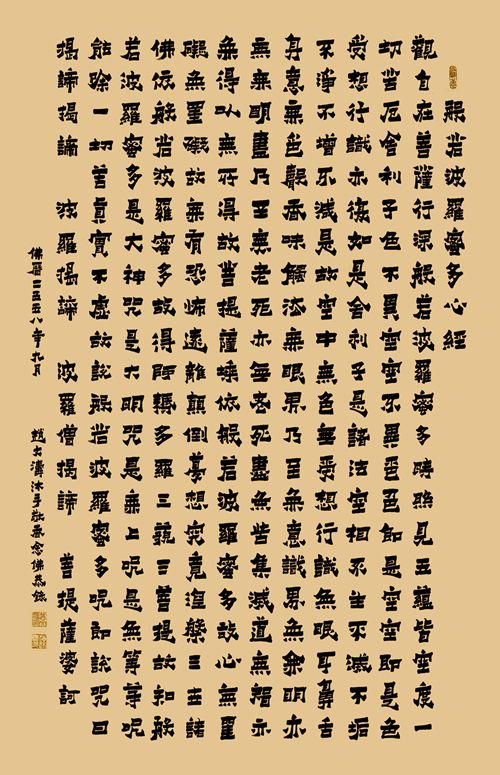 般若波羅蜜多心經
觀自在菩薩行深般若波羅蜜多時照見五蘊皆空度一
切苦厄舍利子色不異空空不異色色即是空空即是色
受想行識亦復如是舍利子是諸法空相不生不滅不垢
不淨不增不減是故空中無色無受想行識無眼耳鼻舌
身意無色聲香味觸法無眼界乃至無意識界無無明亦
無無明盡乃至無老死亦無老死盡無苦集滅道無智亦
無得以無所得故菩提薩埵依般若波羅蜜多故心無罣
礙無罣礙故無有恐怖遠離顛倒夢想究竟涅槃三世諸
佛依般若波羅蜜多故得阿耨多羅三藐三菩提故知般
若波羅蜜多是大神咒是大明咒是無上咒是無等等咒
能除一切苦真實不虛故說般若波羅蜜多咒即說咒曰
揭諦揭諦 波羅揭諦 波羅僧揭諦 菩提薩婆訶
佛曆二五五八年九月 趙大濤沐手敬香念佛恭錄